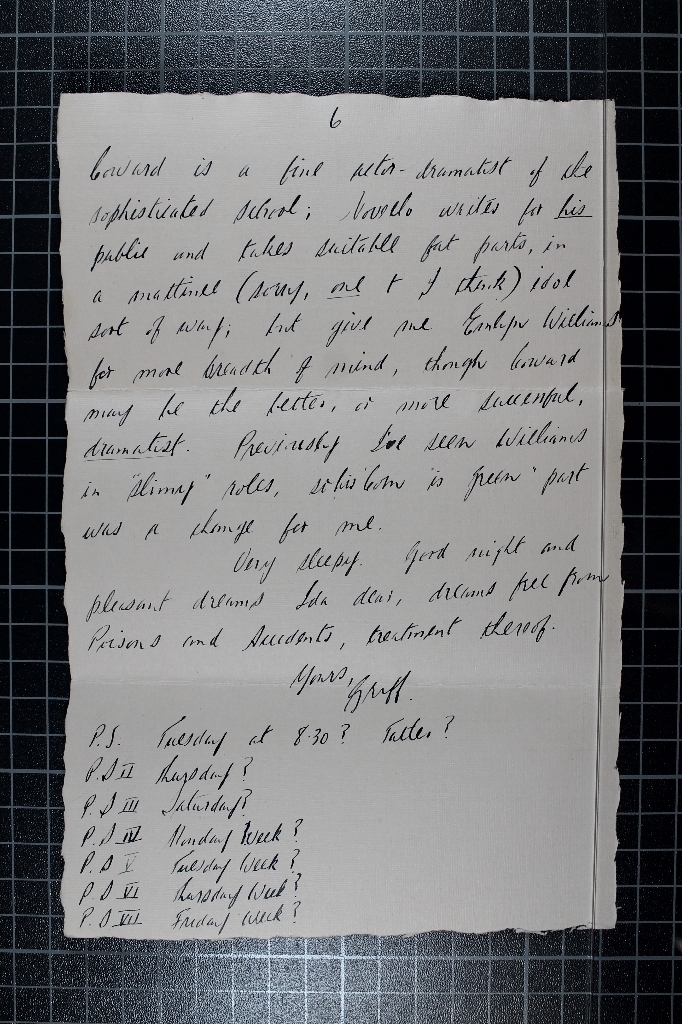 6
Coward is a fine actor-dramatist of the
sophisticated school; Novello writes for his
public and takes suitable fat parts, in
a mattinee (sorry, one t I think) idol
sort of way; but give me Emlyn Williams
for more breadth of mind, though Coward
may be the better, or more successful,
dramatist. Previously I've seen Williams
in "slimy" roles, so his "Corn is Green" part
was a change for me.
Very sleepy. Good night and
pleasant dreams Ida dear, dreams free from
Poisons and Accidents, treatment thereof.
Yours,
Griff.
P.S. Tuesday at 8.30? Tatler?
P.S II Thursday?
P.S III Saturday?
P.S IV Monday Week?
P.S V Tuesday Week?
P.S VI Thursday Week?
P.S VII Friday Week?